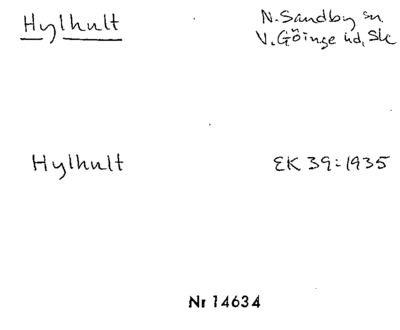 Hylhult
N. Sandby sn
V. Göinge hd, Sk
Hylhult
EK 39:1935
Nr 14634